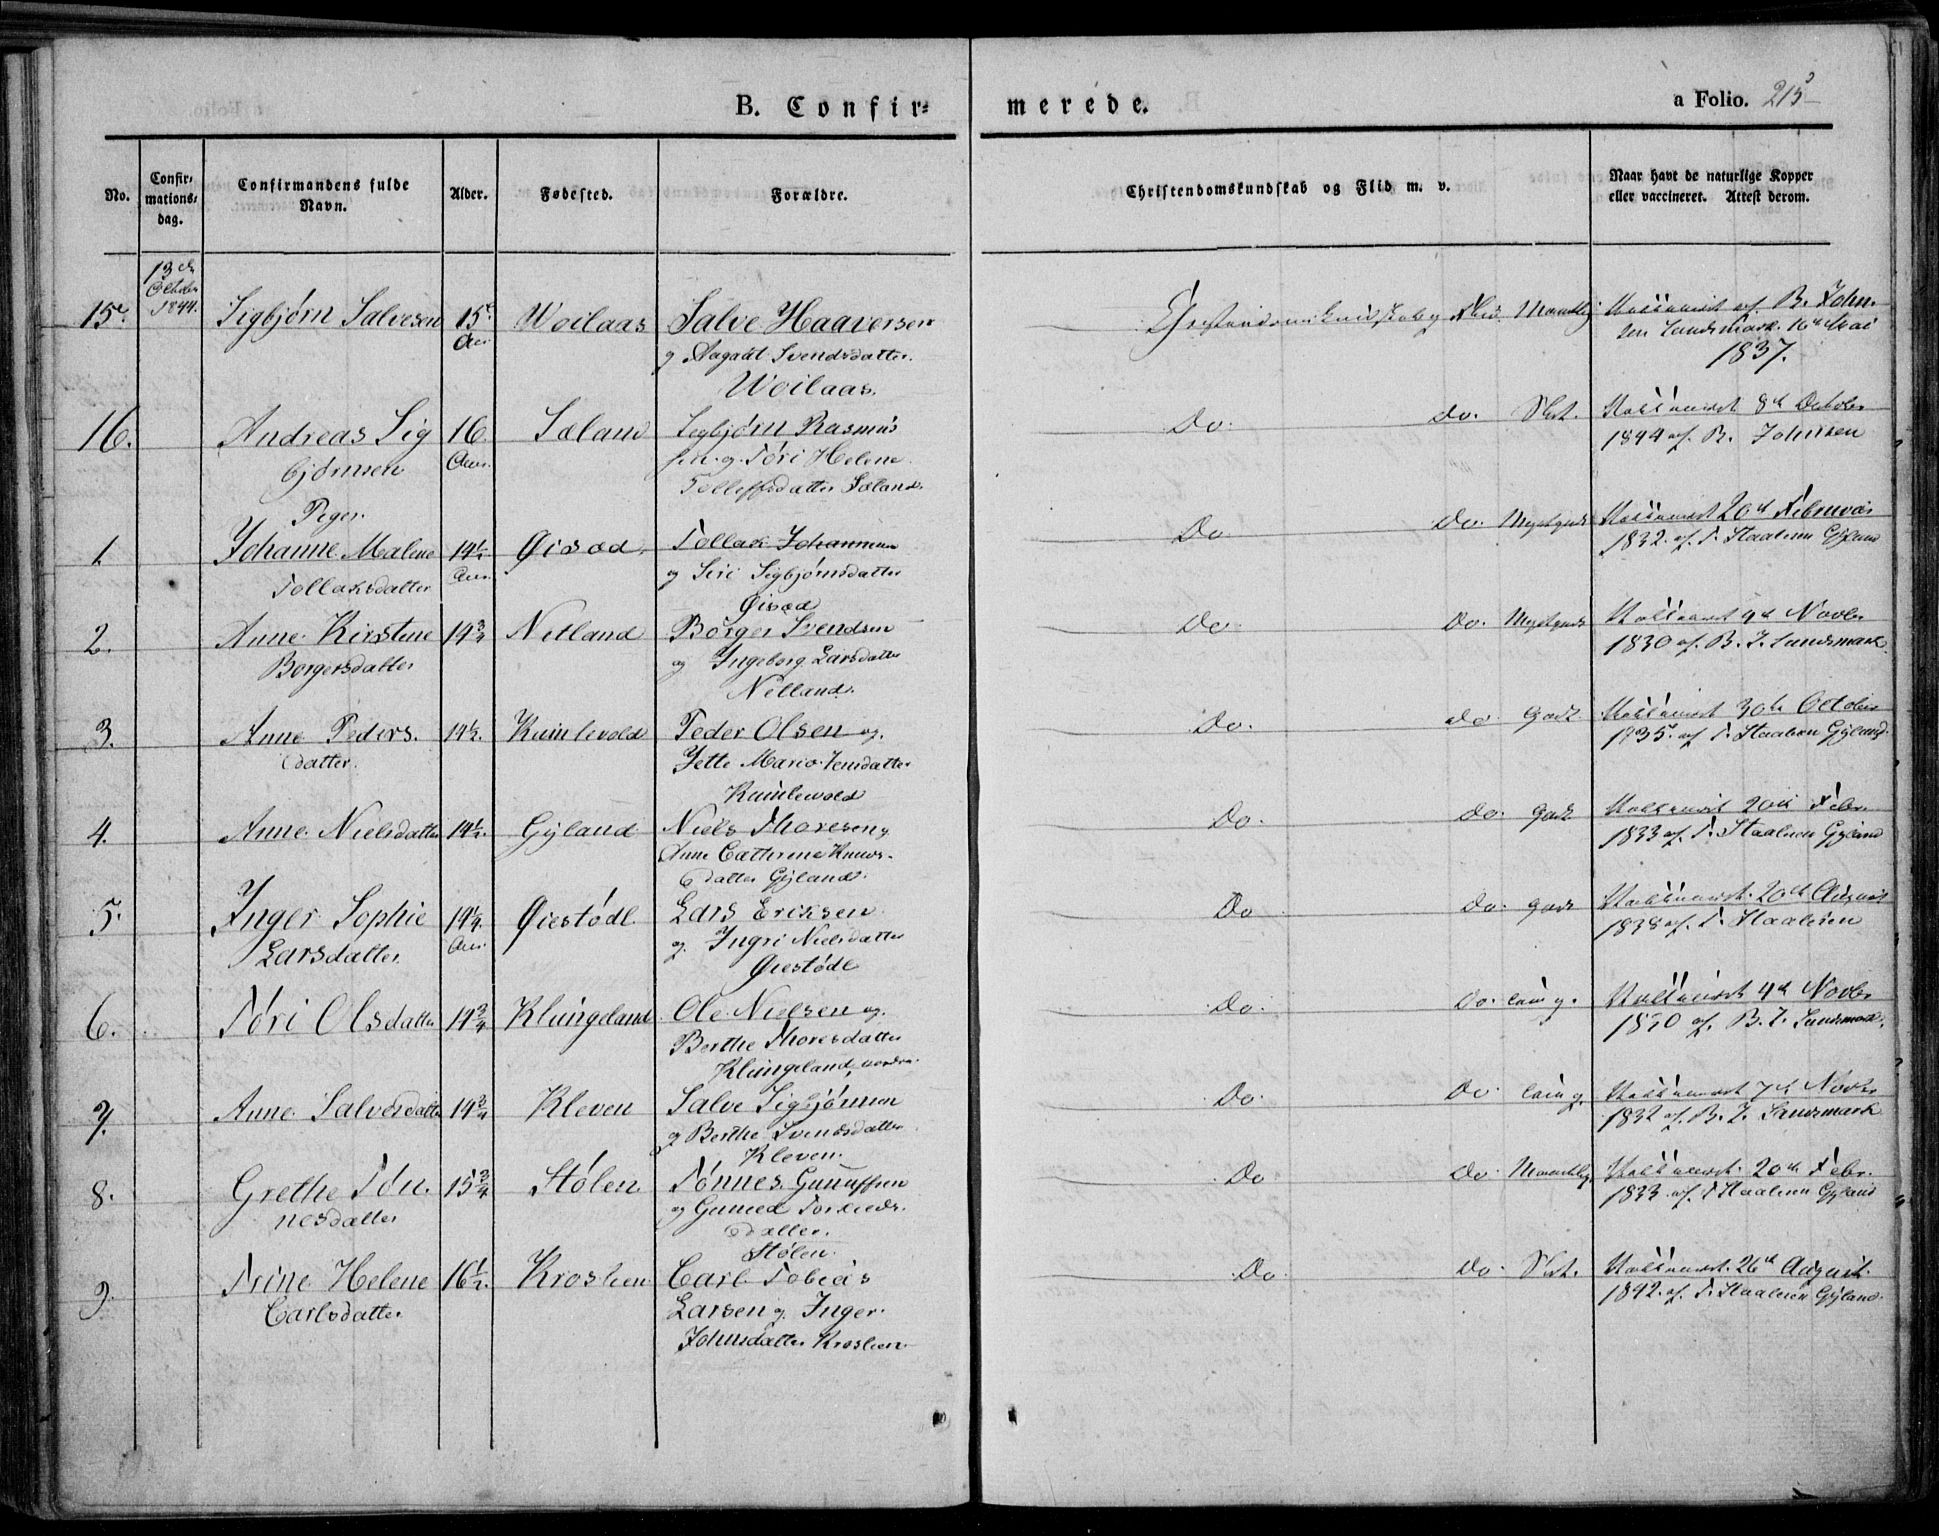 B. Confir=
merede.
a Folio. 215
No.
Confir=
mations=
dag.
Confirmandens fulde
Navn.
Alder.
Fødested.
Forældre.
Christendomskundskab og Flid m. v.
Naar havt de naturlige Kopper
eller vaccineret. Attest derom.
13de
October
1844.
15. Sigbjørn Salvesen 15 Aar Woilaas Salve Haaversen
og Aagaat Svendsdatter
Woilaas.
Christendomskundskab og Flid Maadelig
Vaccineret af B. John-
sen Landsmark. 16de Mai
1837.
16. Andreas Sig 16 Aar. Søland Sigbjørn Rasmus
bjørnsen sen og Tøri Helene
Tollefsdatter Søland.
Do. do. Slet. Vaccineret 8de October
1844 af B. Johnsen
Piger.
1. Johanne Malene 14½ Aar. Øisæd. Tollak Johannesen
Tollaksdatter og Siri Sigbjørnsdatter
Øisæd
Do do. Megetgodt Vaccineret 20de Februar
1832. af T. Staalesen Gyland
2. Anne Kirstene 14¾ Netland Børger Svendsen
Borgersdatter og Ingeborg Larsdatter
Netland.
Do. Do. Megetgodt Vaccineret 4de Novbr
1830 af B. J. Landsmark.
3. Anne Peders. 14½. Kumlevold Peder Olsen og
datter. Jette Maria Jensdatter
Kumlevold
Do. do godt. Vaccineret 30te October
1835. af T. Staalesen Gyland.
4. Anne Nielsdatter 14½. Gyland Niels Thoresen og
Anne Cathrine Knuds-
datter Gyland.
Do. do. godt. Vaccineret 20de Febr
1833 af T. Staalesen Gyland
5. Inger Sophie 14¼. Aar. Øiestødl Lars Ericksen
Larsdatter og Ingri Nielsdatter
Øiestødl
Do do. godt Vaccineret. 20de August
1838 af T. Staalesen
6. Tøri Olsdatter 14¾ Klungeland Ole Nielsen og
Berthe Thoresdatter
Klungeland, nordre.
Do. Do. Vaccineret 4de Novbr
1830 af B. J. Landsmark.
7. Anne Salvesdatter 14¾ Kleven Salve Sigbjørnsen
og Berthe Svendsdatter
Kleven.
Do. Do Vaccineret 7de Novbr
1832 af B. J. Landsmark
8. Grethe Tøn. 15¾ Stølen Tønnes Gunuffsen
nesdatter og Gunild
datter.
Stølen.
Do Do Maadelig. Vaccineret. 20de Febr.
1833 af T Staalesen Gyland
9. Trine Helene 16½. Kroslien Carl Tobias
Carlsdatter Larsen og Inger
Johnsdatter Kroslien
Do. Do. Slet. Vaccineret. 26de August.
1842. af T. Staalesen Gyland.